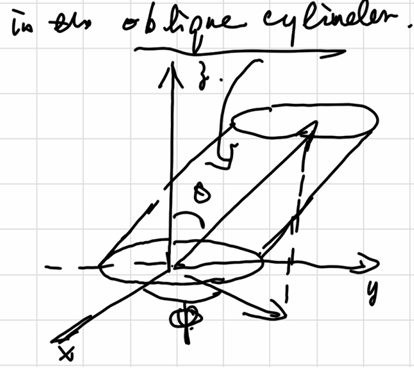 in the oblique cylinder.
z.
θ
y
φ
x